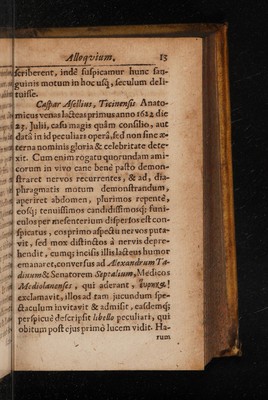 Alloquium. 13
scriberent, indè suspicamur hunc san-
guinis motum in hoc usq; seculum deli-
tuisse.
Caspar Asellius, Ticinensis Anato-
micus venas lacteas primus anno 1622 die
23. Julii, casu magis quàm consilio, aut
datâ in id peculiari operâ, sed non sine æ-
terna nominis gloria & celebritate dete-
xit. Cum enim rogatu quorundam ami-
corum in vivo cane benè pasto demon-
straret nervos recurrentes, & ad, dia-
phragmatis motum demonstrandum,
aperiret abdomen, plurimos repentè,
eosq; tenuissimos candidissimosq; funi-
culos per mesenterium dispersos est con-
spicatus, eos primo aspectu nervos puta-
vit, sed mox distinctos à nervis depre-
hendit, cumq; incisis illis lacteus humor
emanaret, conversus ad Alexandrum Ta-
dinum & Senatorem Septalium, Medicos
Mediolanenses, qui aderant, εὕρηκα!
exclamavit, illos ad tam jucundum spe-
ctaculum invitavit & admisit, easdemq;
perspicuè descripsit libello peculiari, qui
obitum post ejus primò lucem vidit. Ha-
rum